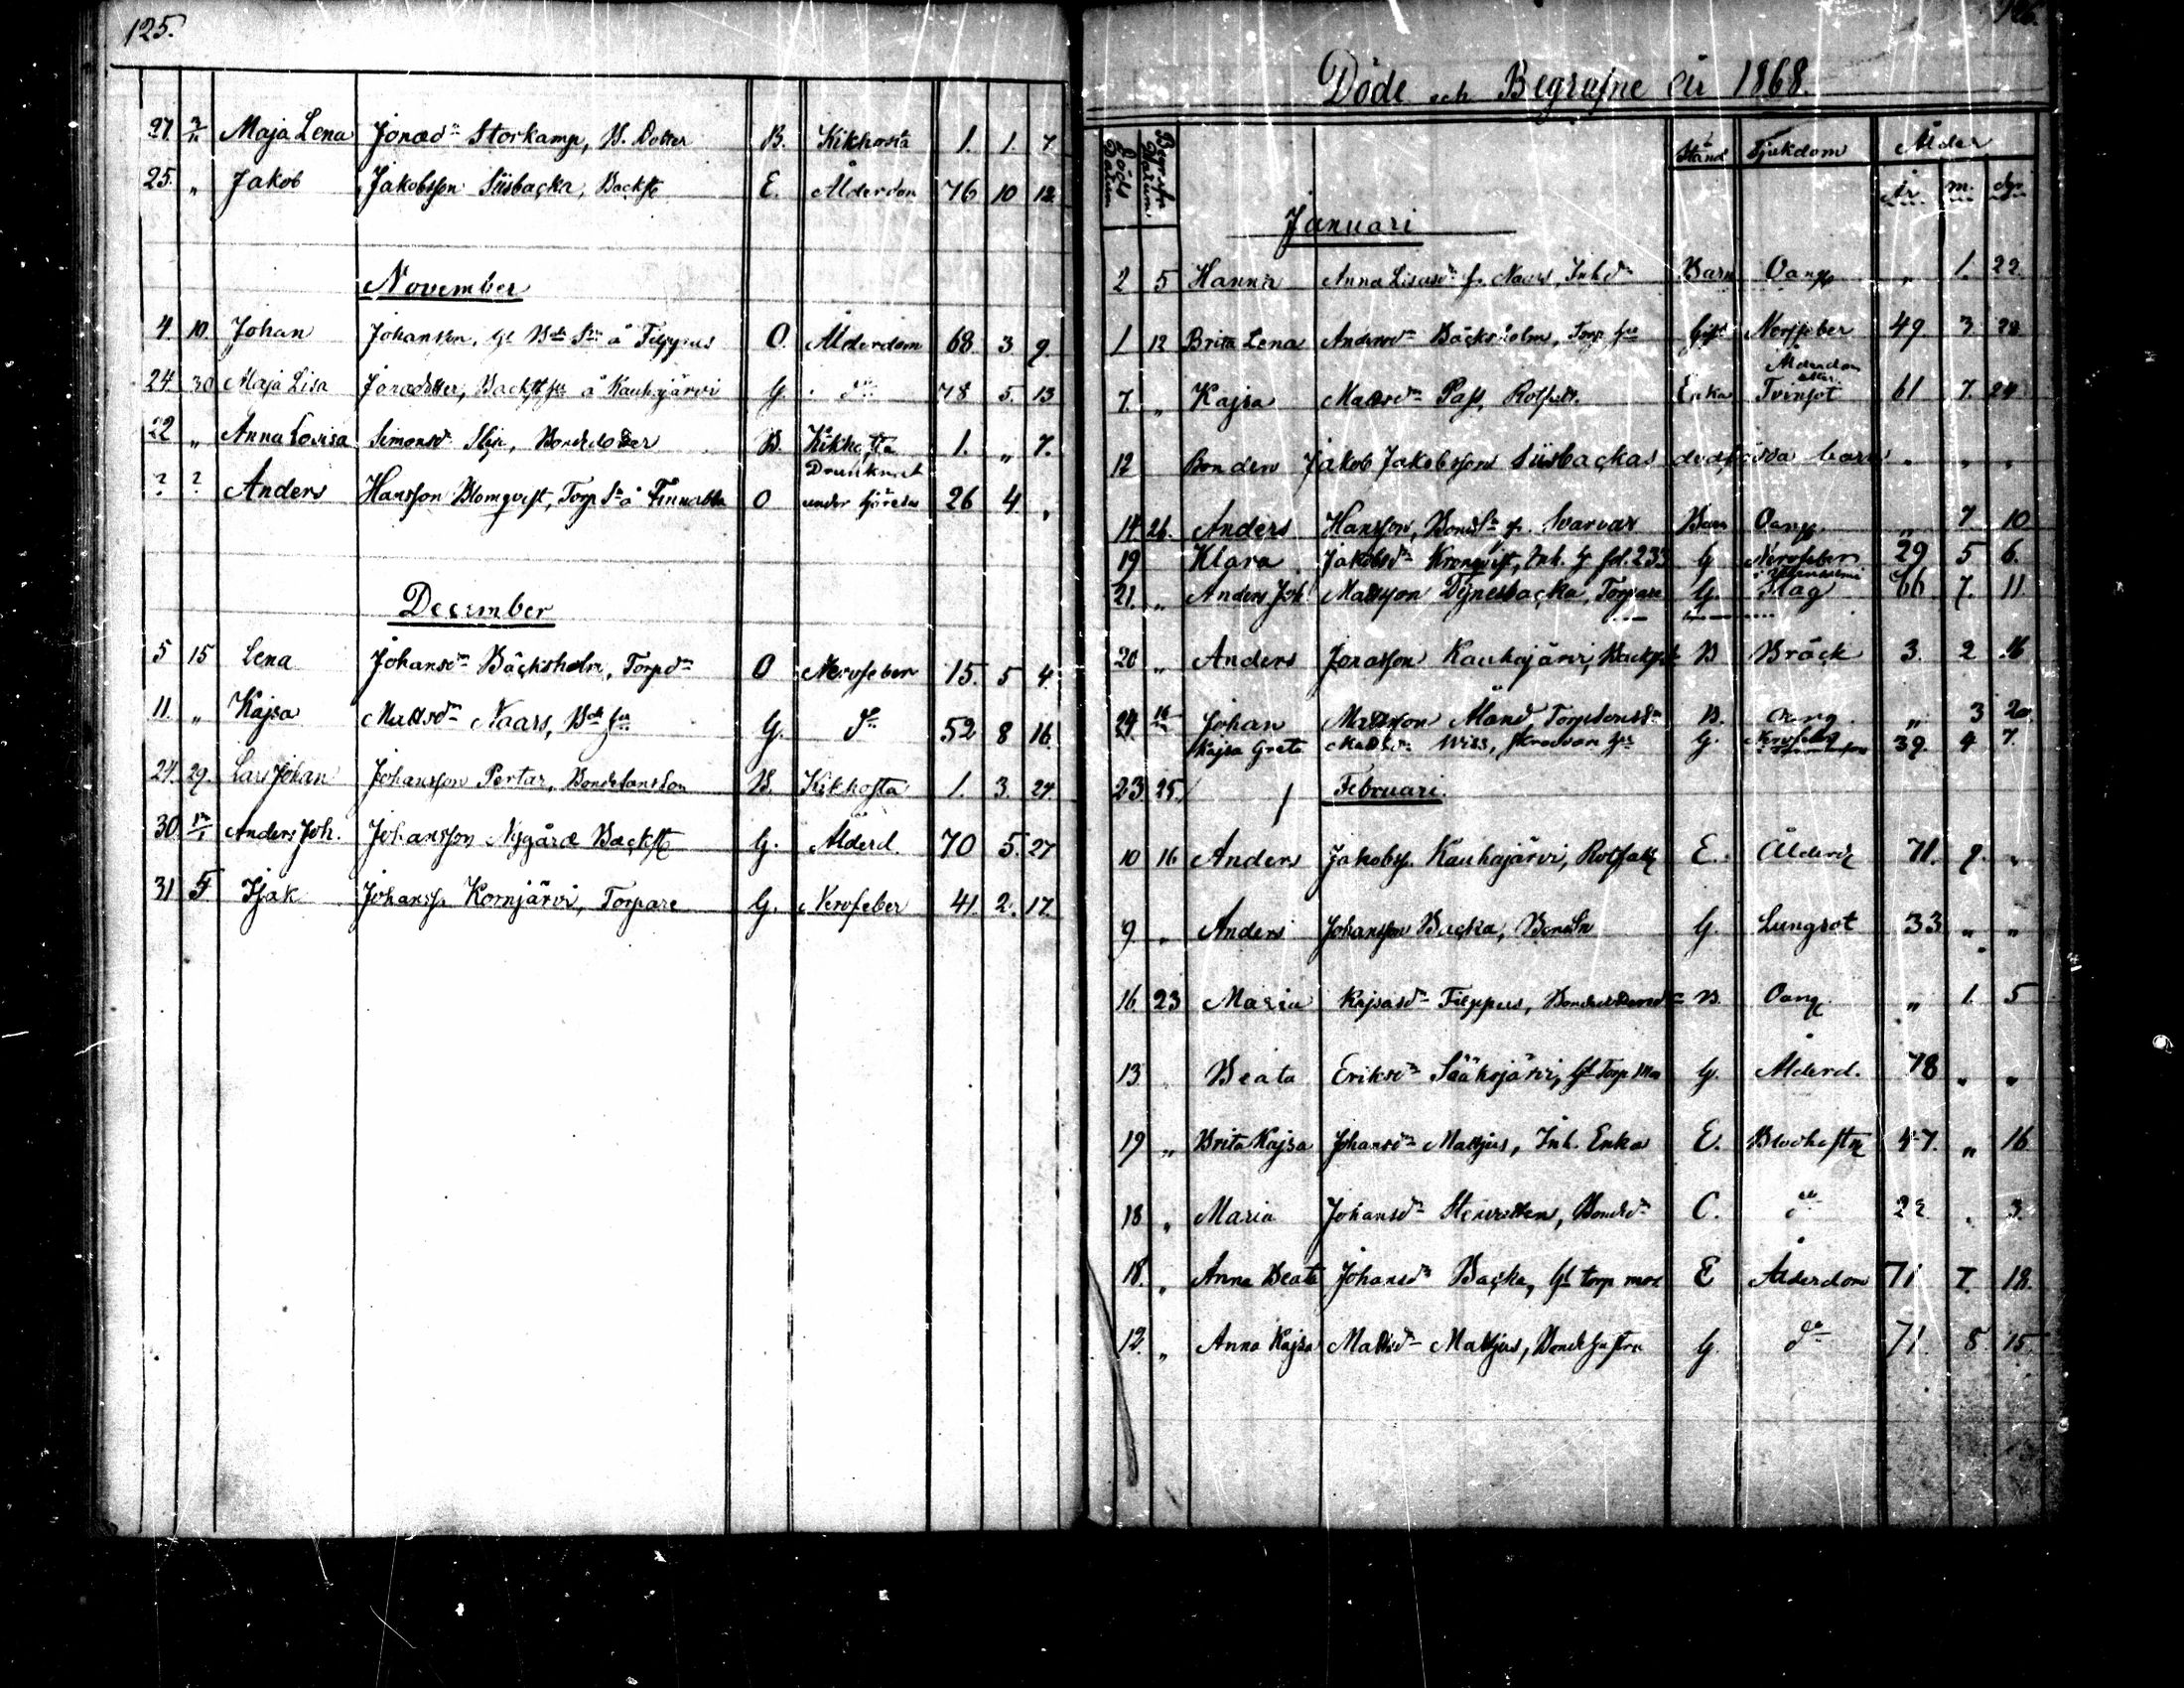 125.
27. 2/11 Maja Lena Jonasdr Storkamp, B. Dotter B. Kikhosta 1. 1. 7
25. " Jakob Jakobsson Siisbacka, Backst E. Ålderdom 76 10 12
November
4. 10. Johan Johansson, å Filppus O. Ålderdom 68. 3 9
24. 30 Maja Lisa Jonasdotter, å Kauhajärvi G. do 78 5. 13
22 " Anna Lovisa Simonsd Bondedotter B. Kikhosta 1. " 7.
? ? Anders Hansson Blomqvist, Torp Sn å O Drunknat under 26 4 "
December
5 15 Lena Johansdr Bäcksholm, Torpdr O Nervfeber 15. 5 4.
11. " Kajsa Mattsdr Naars, G. do 52 8 16.
24. 29. Lars Johan Johansson Pertar, Bondesonson B. Kikhosta 1. 3. 24.
30. Anders Joh. Johansson Nygård Backst G. Ålderd. 70 5. 27
31 Isak Johanss. Kornjärvi, Torpare G. Nervfeber 41. 2. 17.
126.
Döde och Begrafne år 1868.
Döds Datum Begrafn Datum Stånd Sjukdom Ålder
år m. dgr
Januari
2 5 Hanna Anna Lisasdr fr. Naars, Inhdr Barn Oang " 1. 22.
1 12 Brita Lena Andersdr Bäcksholm, Torp hu Gift Nervfeber 49 3. 28
Ålderdom
7. " Kajsa Mattsdr Pass, Rotfatt. Enka Tvinsot 61 7. 24
12 Bonden Jakob Jakobsson Siisbackas dödfödda barn " " "
14. 26. Anders Hansson, BondSn fr. Svarvar Barn Oang. " 7 10
19 Klara Jakobsdr Kronqvist, Inh. fol. 233 G Nervfeber 29 5 6.
21. " Anders Joh. Mattsson Dynesbacka, Torpare G. Slag 66 7. 11.
20 " Anders Jonasson Kauhajärvi, Backst B Bråck 3. 2 16
24 Johan Mattsson Åland, Torpsonsn B. Oang. " 3 20.
Kajsa Greta Mattsdr Wiss, Skradvare hu G. Nervfeber 39. 4 7.
23 25. / / Februari.
10 16 Anders Jakobss. Kauhajärvi, Rotfatt E. Ålderd 71. 9. "
9 " Anders Johansson Backa, BondSn G. Lungsot 33 " "
16. 23 Maria Kajsasdr Filppus, B. Oang " 1. 5
13 Beata Eriksdr Sääksjärvi, Gl Torp Mor G. Ålderd. 78 " "
19 " Brita Kajsa Johansdr Mattjus, Inh. Enka E. Blodhosta 47. " 16
18 " Maria Johansdr Stenvatten, Bondedr O. do 22 " 3.
18. " Anna Beata Johansdr Backa, Gl torp mor E Ålderdom 71 7. 18.
12. " Anna Kajsa Mattsdr Mattjus, Bondehustru G. do 71. 8. 15